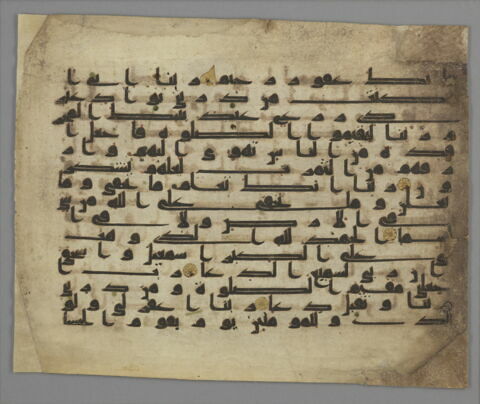 فانك غفور رحيم ربنا اني ا
سكنت من ذريتي بواد غير
ذي زرع عند بيتك المحر
م ربنا ليقيموا الصلوة فاجعل ا
فئدة من الناس تهوي اليهم وار
زقهم من الثمرت لعلهم يشكر
ون ربنا انك تعلم ما نخفي وما
نعلن وما يخفى على الله من شي
في الارض ولا في ا
لسما الحمد لله الذي وهب
لي على الكبر اسمعيل واسحق
ان ربي لسميع الدعا رب ا
جعلني مقيم الصلوة ومن ذريتي
ربنا وتقبل دعا ربنا اغفر لي ولو
لدي وللمومنين يوم يقوم الحسا